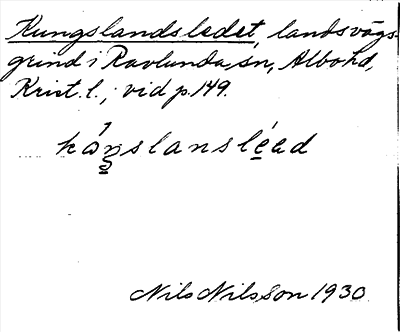 Kungslandsledet, landsvägs-
grind i Ravlunda sn, Albo hd,
Krist. l., vid p. 149.
Nils Nilsson 1930